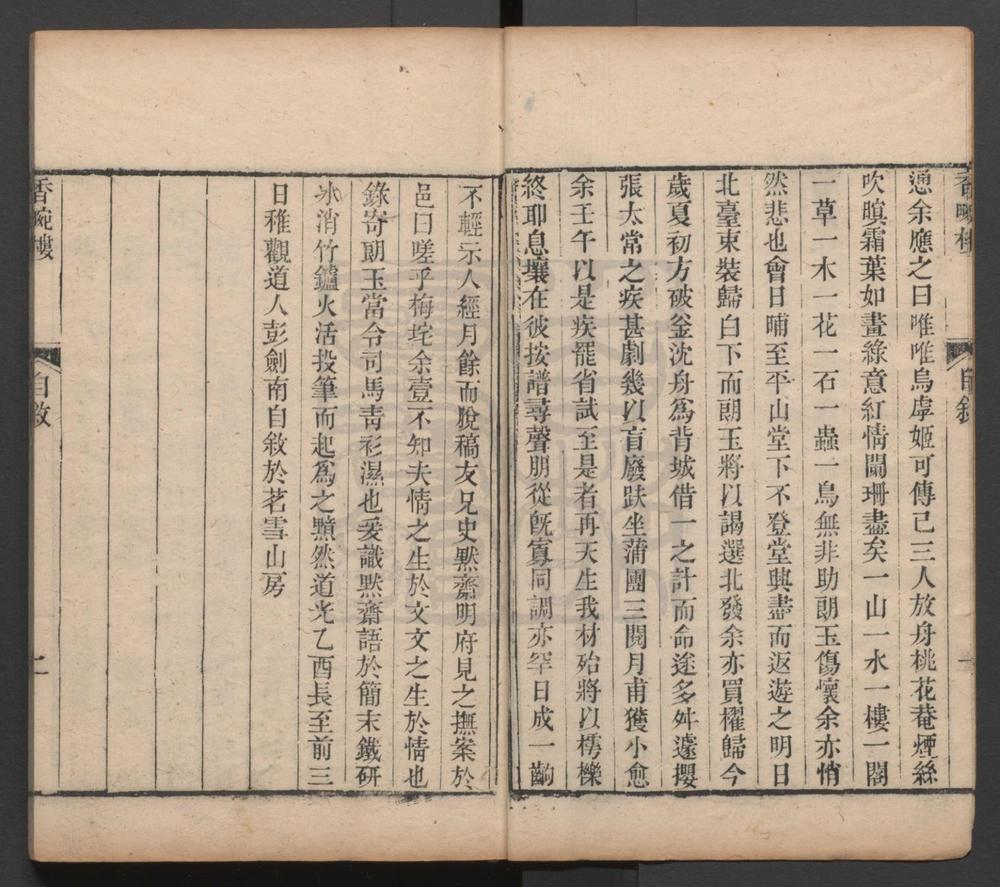 香畹樓
自敘
慂余應之曰唯唯烏虖姬可傳已三人放舟桃花菴煙絲
吹暝霜葉如畫綠意紅情闌珊盡矣一山一水一樓一閣
一草一木一花一石一蟲一鳥無非助朗玉傷懷余亦悄
然悲也會日晡至平山堂下不登堂興盡而返遊之明日
北臺束裝歸白下而朗玉將以謁選北發余亦買櫂歸今
歲夏初方破釜沈舟爲背城借一之計而命途多舛遽攖
張太常之疾甚劇幾以盲廢趺坐蒲團三閱月甫獲小愈
余壬午以是疾罷省試至是者再天生我材殆將以樗櫟
終耶息壤在彼按譜尋聲朋從旣寡同調亦罕日成一齣
不輕示人經月餘而脫稿友兄史默齋明府見之撫案於
邑曰嗟乎梅垞余壹不知夫情之生於文文之生於情也
錄寄朗玉當令司馬靑衫濕也爰識默齋語於簡末鐵硏
氷消竹鑪火活投筆而起爲之黯然道光乙酉長至前三
日稚觀道人彭劍南自敘於茗雪山房
香畹樓
自敘
二